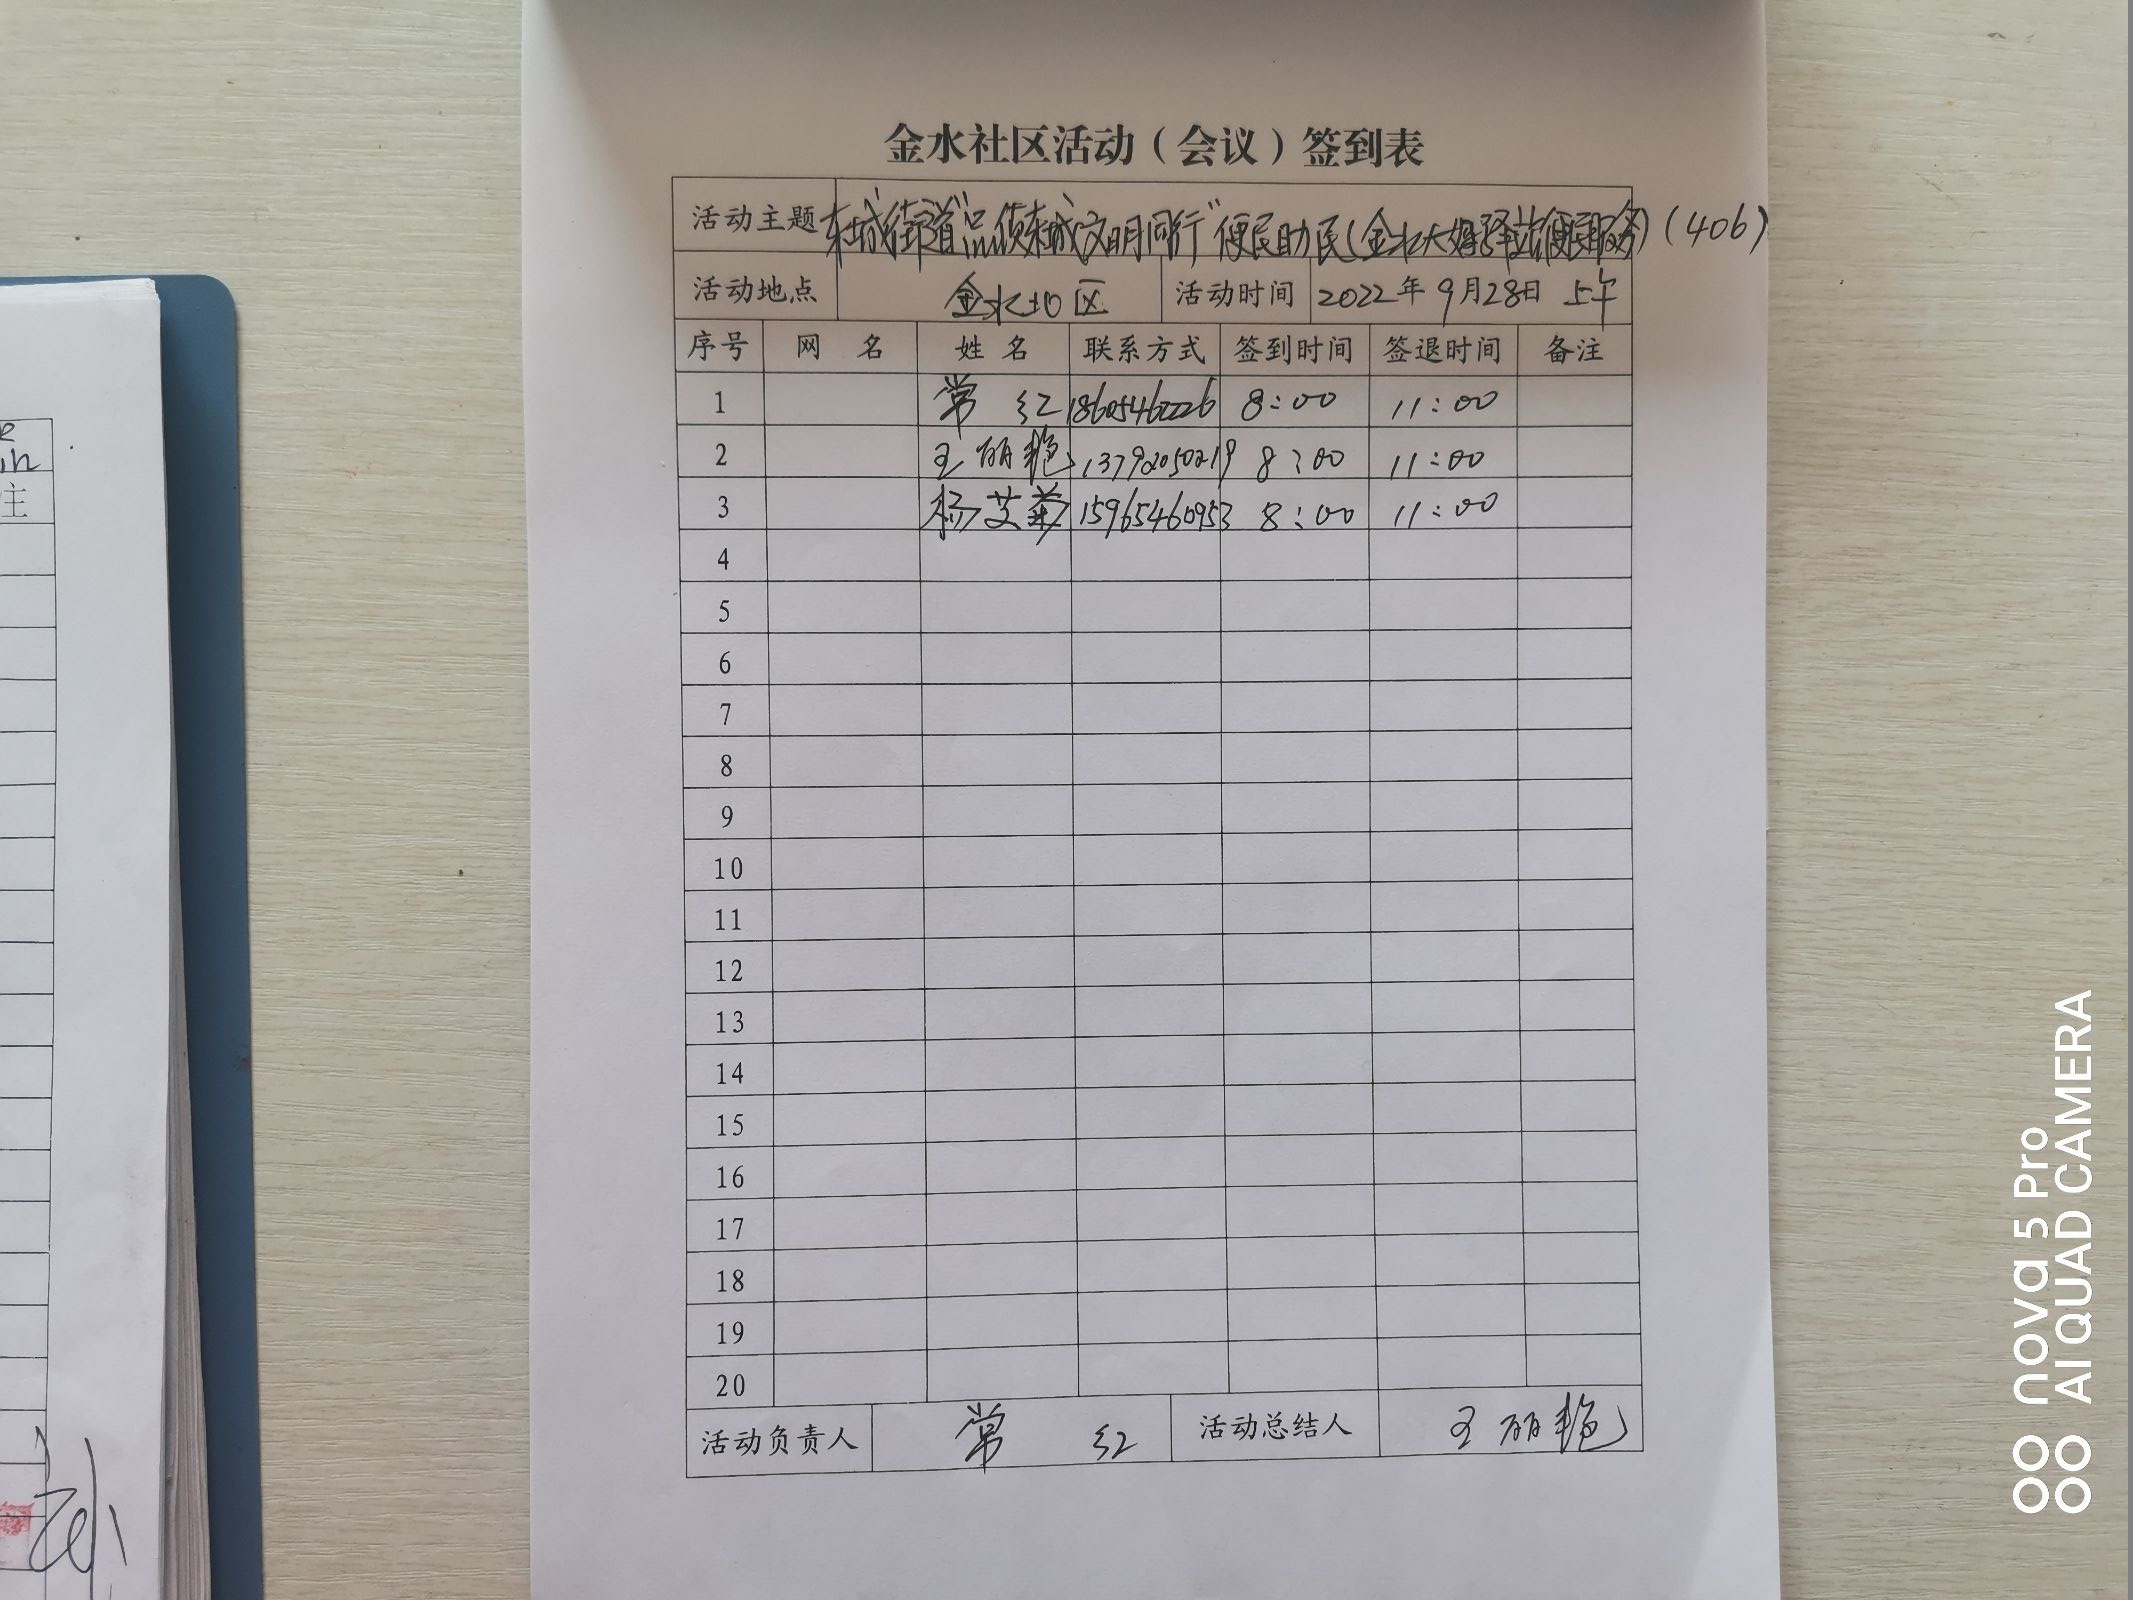 金水社区活动（会议）签到表
活动主题 东城街道"品质东城文明同行"便民助民(金水大嫂驿站便民服务)(406)
活动地点 金水社区 活动时间 2022年9月28日 上午
序号 网 名 姓 名 联系方式 签到时间 签退时间 备注
1 常 红 18605462226 8:00 11:00
2 王丽艳 13792050219 8:00 11:00
3 杨艾菊 15965460953 8:00 11:00
4
5
6
7
8
9
10
11
12
13
14
15
16
17
18
19
20
活动负责人 常 红 活动总结人 王丽艳
注
nova 5 Pro
AI QUAD CAMERA